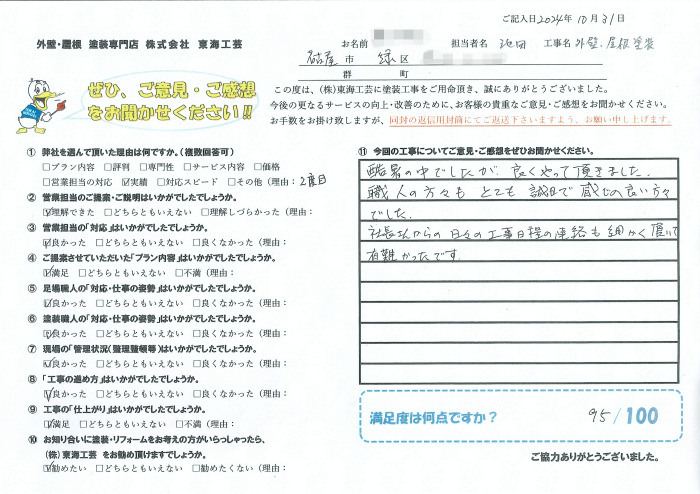 ご記入日2024年 10月31日
外壁・屋根 塗装専門店 株式会社 東海工芸
お名前 担当者名 池田 工事名 外壁、屋根塗装
市 緑 区
群 町
ぜひ、ご意見・ご感想
をお聞かせください!!
この度は、(株)東海工芸に塗装工事をご用命頂き、誠にありがとうございました。
今後の更なるサービスの向上・改善のために、お客様の貴重なご意見・ご感想をお聞かせください。
お手数をお掛け致しますが、同封の返信用封筒にてご返送下さいますよう、お願い申し上げます。
① 弊社を選んで頂いた理由は何ですか。(複数回答可)
□プラン内容 □評判 □専門性 □サービス内容 □価格
□営業担当の対応 ☑実績 □対応スピード □その他(理由:2度目
② 営業担当のご提案・ご説明はいかがでしたでしょうか。
☑理解できた □どちらともいえない □理解しづらかった(理由:
③ 営業担当の「対応」はいかがでしたでしょうか。
☑良かった □どちらともいえない □良くなかった(理由:
④ ご提案させていただいた「プラン内容」はいかがでしたでしょうか。
☑満足 □どちらともいえない □不満(理由:
⑤ 足場職人の「対応・仕事の姿勢」はいかがでしたでしょうか。
☑良かった □どちらともいえない □良くなかった(理由:
⑥ 塗装職人の「対応・仕事の姿勢」はいかがでしたでしょうか。
☑良かった □どちらともいえない □良くなかった(理由:
⑦ 現場の「管理状況(整理整頓等)」はいかがでしたでしょうか。
☑良かった □どちらともいえない □良くなかった(理由:
⑧ 「工事の進め方」はいかがでしたでしょうか。
☑良かった □どちらともいえない □良くなかった(理由:
⑨ 工事の「仕上がり」はいかがでしたでしょうか。
☑満足 □どちらともいえない □不満(理由:
⑩ お知り合いに塗装・リフォームをお考えの方がいらっしゃったら、
(株)東海工芸 をお勧め頂けますでしょうか。
☑勧めたい □どちらともいえない □勧めたくない(理由:
⑪ 今回の工事についてご意見・ご感想をぜひお聞かせください。
酷暑の中でしたが、良くやって頂きました。
職人の方々も とても 誠実で 感じの良い方々
でした。
社長さんからの 日々の工事日程の連絡も 細かく 届いて
有難かったです。
満足度は何点ですか? 95/100
ご協力ありがとうございました。